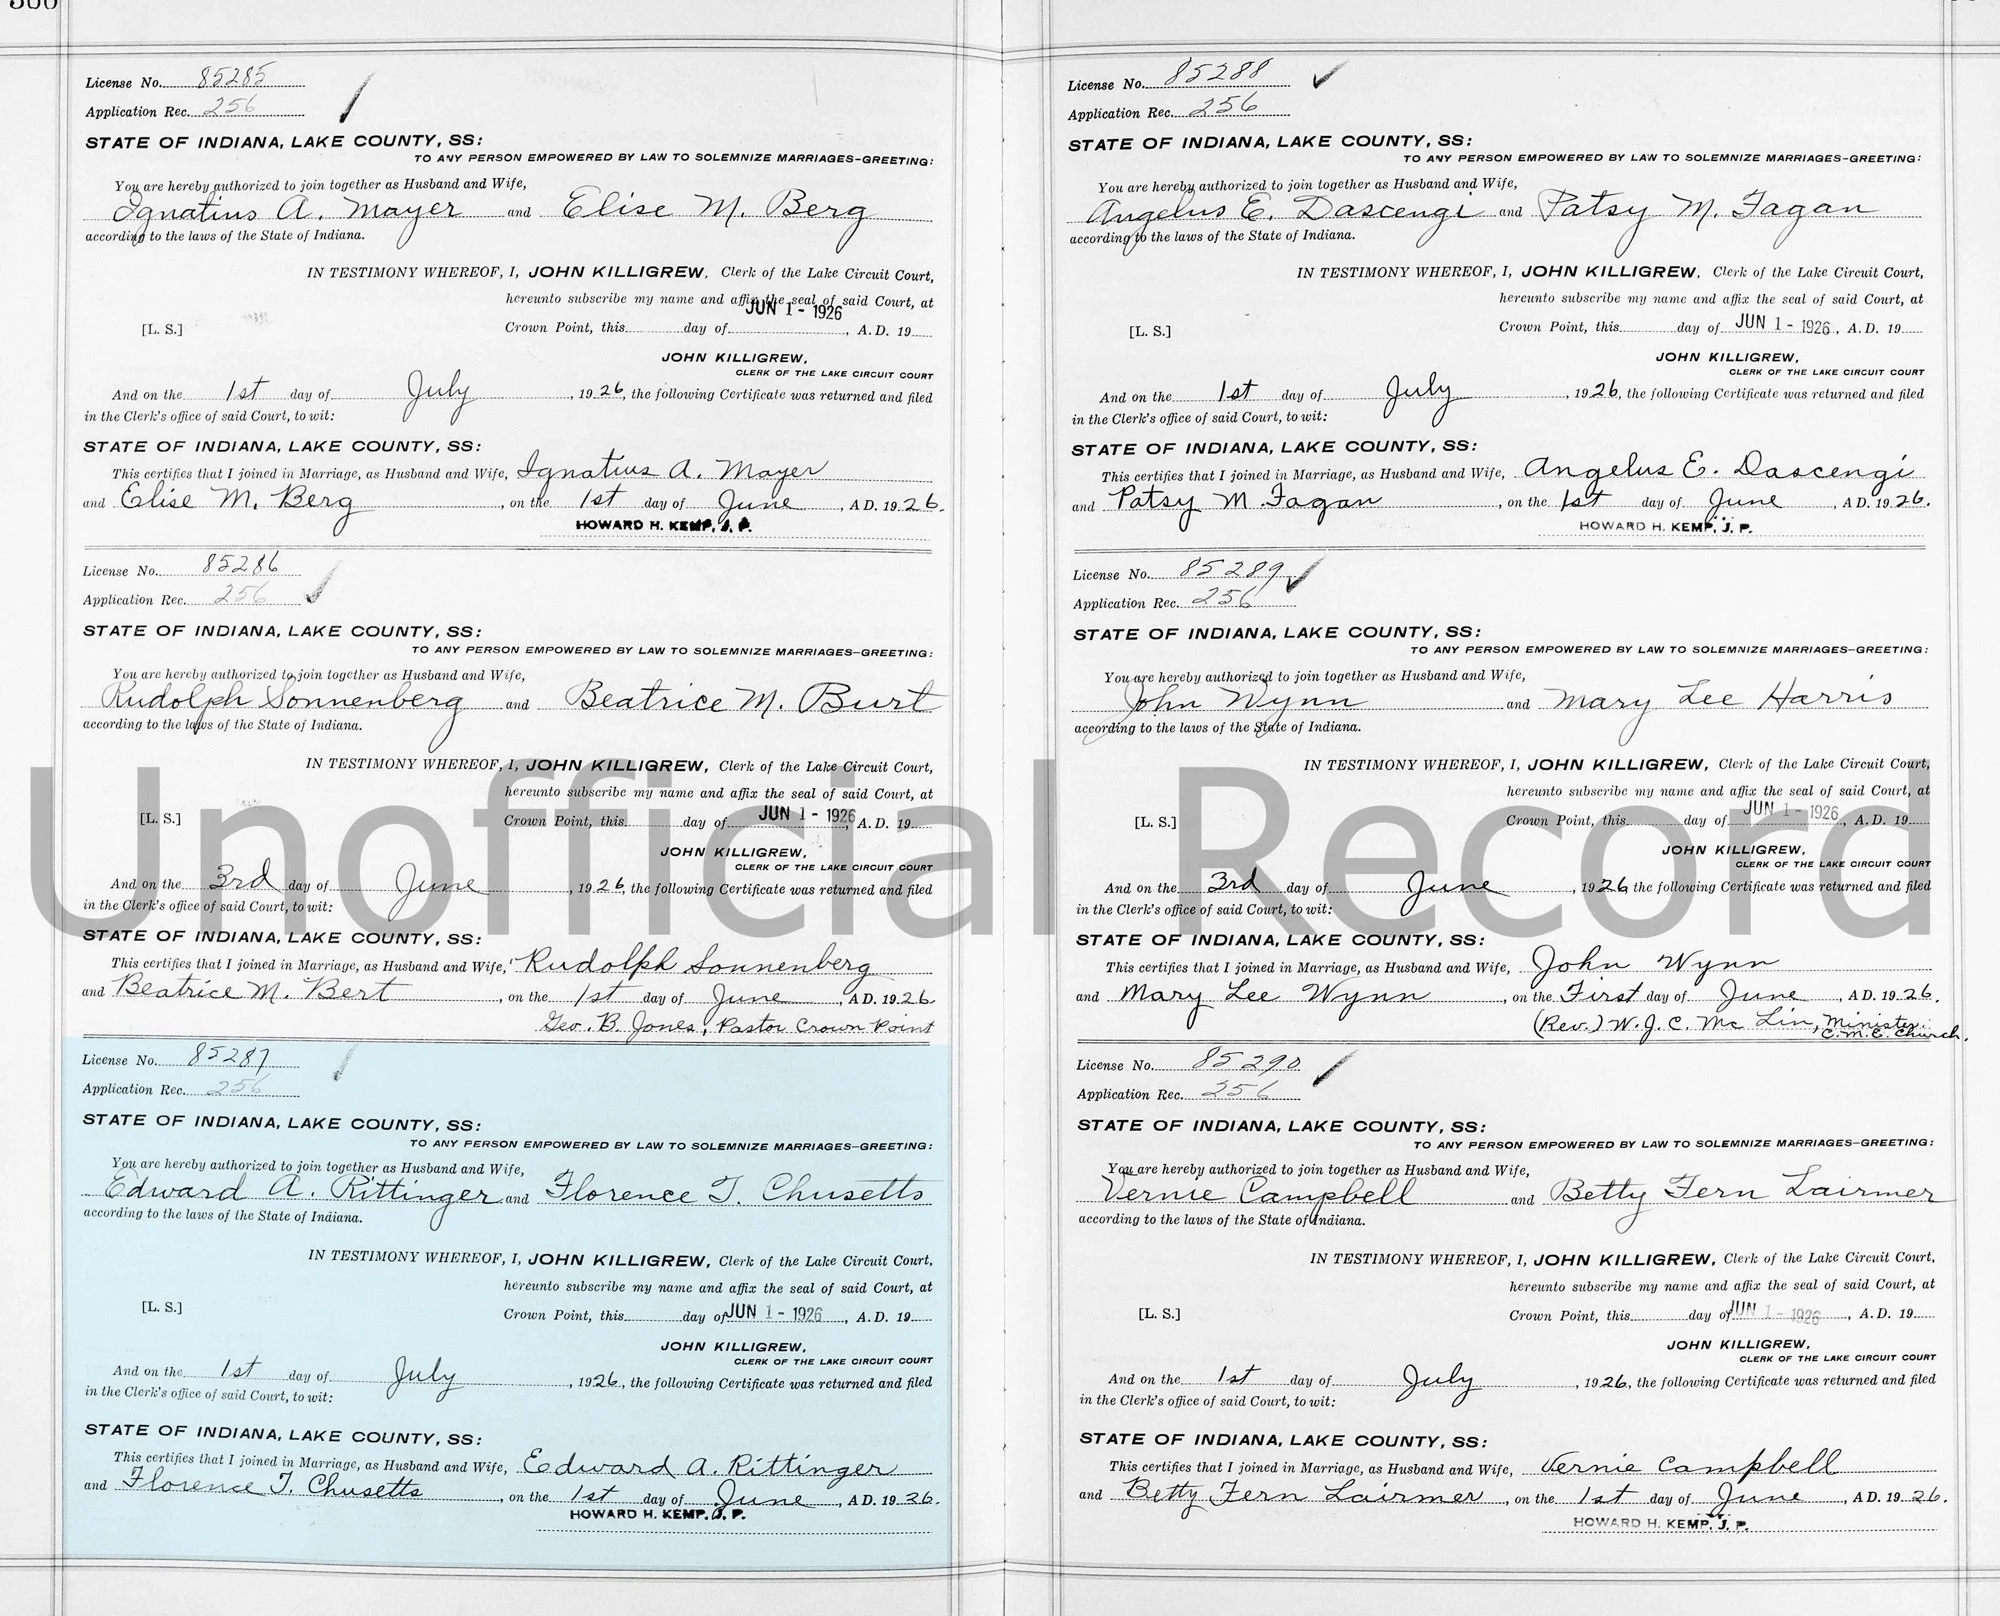 License No. 85285
Application Rec. 256
STATE OF INDIANA, LAKE COUNTY, SS:
TO ANY PERSON EMPOWERED BY LAW TO SOLEMNIZE MARRIAGES-GREETING:
You are hereby authorized to join together as Husband and Wife,
Ignatius A. Mayer and Elise M. Berg
according to the laws of the State of Indiana.
IN TESTIMONY WHEREOF, I, JOHN KILLIGREW, Clerk of the Lake Circuit Court,
hereunto subscribe my name and affix the seal of said Court, at
[L. S.] Crown Point, this day of JUN 1 - 1926, A. D. 19
JOHN KILLIGREW,
CLERK OF THE LAKE CIRCUIT COURT
And on the 1st day of July, 1926, the following Certificate was returned and filed
in the Clerk's office of said Court, to wit:
STATE OF INDIANA, LAKE COUNTY, SS:
This certifies that I joined in Marriage, as Husband and Wife, Ignatius A. Mayer
and Elise M. Berg, on the 1st day of June, A D. 1926.
HOWARD H. KEMP, J. P.
License No. 85286
Application Rec. 256
STATE OF INDIANA, LAKE COUNTY, SS:
TO ANY PERSON EMPOWERED BY LAW TO SOLEMNIZE MARRIAGES-GREETING:
You are hereby authorized to join together as Husband and Wife,
Rudolph Sonnenberg and Beatrice M. Burt
according to the laws of the State of Indiana.
IN TESTIMONY WHEREOF, I, JOHN KILLIGREW, Clerk of the Lake Circuit Court,
hereunto subscribe my name and affix the seal of said Court, at
[L. S.] Crown Point, this day of JUN 1 - 1926, A. D. 19
JOHN KILLIGREW,
CLERK OF THE LAKE CIRCUIT COURT
And on the 3rd day of June, 1926, the following Certificate was returned and filed
in the Clerk's office of said Court, to wit:
STATE OF INDIANA, LAKE COUNTY, SS:
This certifies that I joined in Marriage, as Husband and Wife, Rudolph Sonnenberg
and Beatrice M. Bert, on the 1st day of June, A D. 1926.
Geo. B. Jones, Pastor Crown Point
License No. 85287
Application Rec. 256
STATE OF INDIANA, LAKE COUNTY, SS:
TO ANY PERSON EMPOWERED BY LAW TO SOLEMNIZE MARRIAGES-GREETING:
You are hereby authorized to join together as Husband and Wife,
Edward A. Rittinger and Florence T. Chusetts
according to the laws of the State of Indiana.
IN TESTIMONY WHEREOF, I, JOHN KILLIGREW, Clerk of the Lake Circuit Court,
hereunto subscribe my name and affix the seal of said Court, at
[L. S.] Crown Point, this day of JUN 1 - 1926, A. D. 19
JOHN KILLIGREW,
CLERK OF THE LAKE CIRCUIT COURT
And on the 1st day of July, 1926, the following Certificate was returned and filed
in the Clerk's office of said Court, to wit:
STATE OF INDIANA, LAKE COUNTY, SS:
This certifies that I joined in Marriage, as Husband and Wife, Edward A. Rittinger
and Florence T. Chusetts, on the 1st day of June, A D. 1926.
HOWARD H. KEMP, J. P.
License No. 85288
Application Rec. 256
STATE OF INDIANA, LAKE COUNTY, SS:
TO ANY PERSON EMPOWERED BY LAW TO SOLEMNIZE MARRIAGES-GREETING:
You are hereby authorized to join together as Husband and Wife,
Angelus E. Dascengi and Patsy M. Fagan
according to the laws of the State of Indiana.
IN TESTIMONY WHEREOF, I, JOHN KILLIGREW, Clerk of the Lake Circuit Court,
hereunto subscribe my name and affix the seal of said Court, at
[L. S.] Crown Point, this day of JUN 1 - 1926, A. D. 19
JOHN KILLIGREW,
CLERK OF THE LAKE CIRCUIT COURT
And on the 1st day of July, 1926, the following Certificate was returned and filed
in the Clerk's office of said Court, to wit:
STATE OF INDIANA, LAKE COUNTY, SS:
This certifies that I joined in Marriage, as Husband and Wife, Angelus E. Dascengi
and Patsy M. Fagan, on the 1st day of June, A D. 1926.
HOWARD H. KEMP, J. P.
License No. 85289
Application Rec. 256
STATE OF INDIANA, LAKE COUNTY, SS:
TO ANY PERSON EMPOWERED BY LAW TO SOLEMNIZE MARRIAGES-GREETING:
You are hereby authorized to join together as Husband and Wife,
John Wynn and Mary Lee Harris
according to the laws of the State of Indiana.
IN TESTIMONY WHEREOF, I, JOHN KILLIGREW, Clerk of the Lake Circuit Court,
hereunto subscribe my name and affix the seal of said Court, at
[L. S.] Crown Point, this day of JUN 1 - 1926, A. D. 19
JOHN KILLIGREW,
CLERK OF THE LAKE CIRCUIT COURT
And on the 3rd day of June, 1926, the following Certificate was returned and filed
in the Clerk's office of said Court, to wit:
STATE OF INDIANA, LAKE COUNTY, SS:
This certifies that I joined in Marriage, as Husband and Wife, John Wynn
and Mary Lee Wynn, on the First day of June, A D. 1926.
(Rev.) W. J. C. Mc Lin, Minister
C. M. E. Church.
License No. 85290
Application Rec. 256
STATE OF INDIANA, LAKE COUNTY, SS:
TO ANY PERSON EMPOWERED BY LAW TO SOLEMNIZE MARRIAGES-GREETING:
You are hereby authorized to join together as Husband and Wife,
Vernie Campbell and Betty Fern Lairmer
according to the laws of the State of Indiana.
IN TESTIMONY WHEREOF, I, JOHN KILLIGREW, Clerk of the Lake Circuit Court,
hereunto subscribe my name and affix the seal of said Court, at
[L. S.] Crown Point, this day of JUN 1 - 1926, A. D. 19
JOHN KILLIGREW,
CLERK OF THE LAKE CIRCUIT COURT
And on the 1st day of July, 1926, the following Certificate was returned and filed
in the Clerk's office of said Court, to wit:
STATE OF INDIANA, LAKE COUNTY, SS:
This certifies that I joined in Marriage, as Husband and Wife, Vernie Campbell
and Betty Fern Lairmer, on the 1st day of June, A D. 1926.
HOWARD H. KEMP, J. P.
Unofficial Record